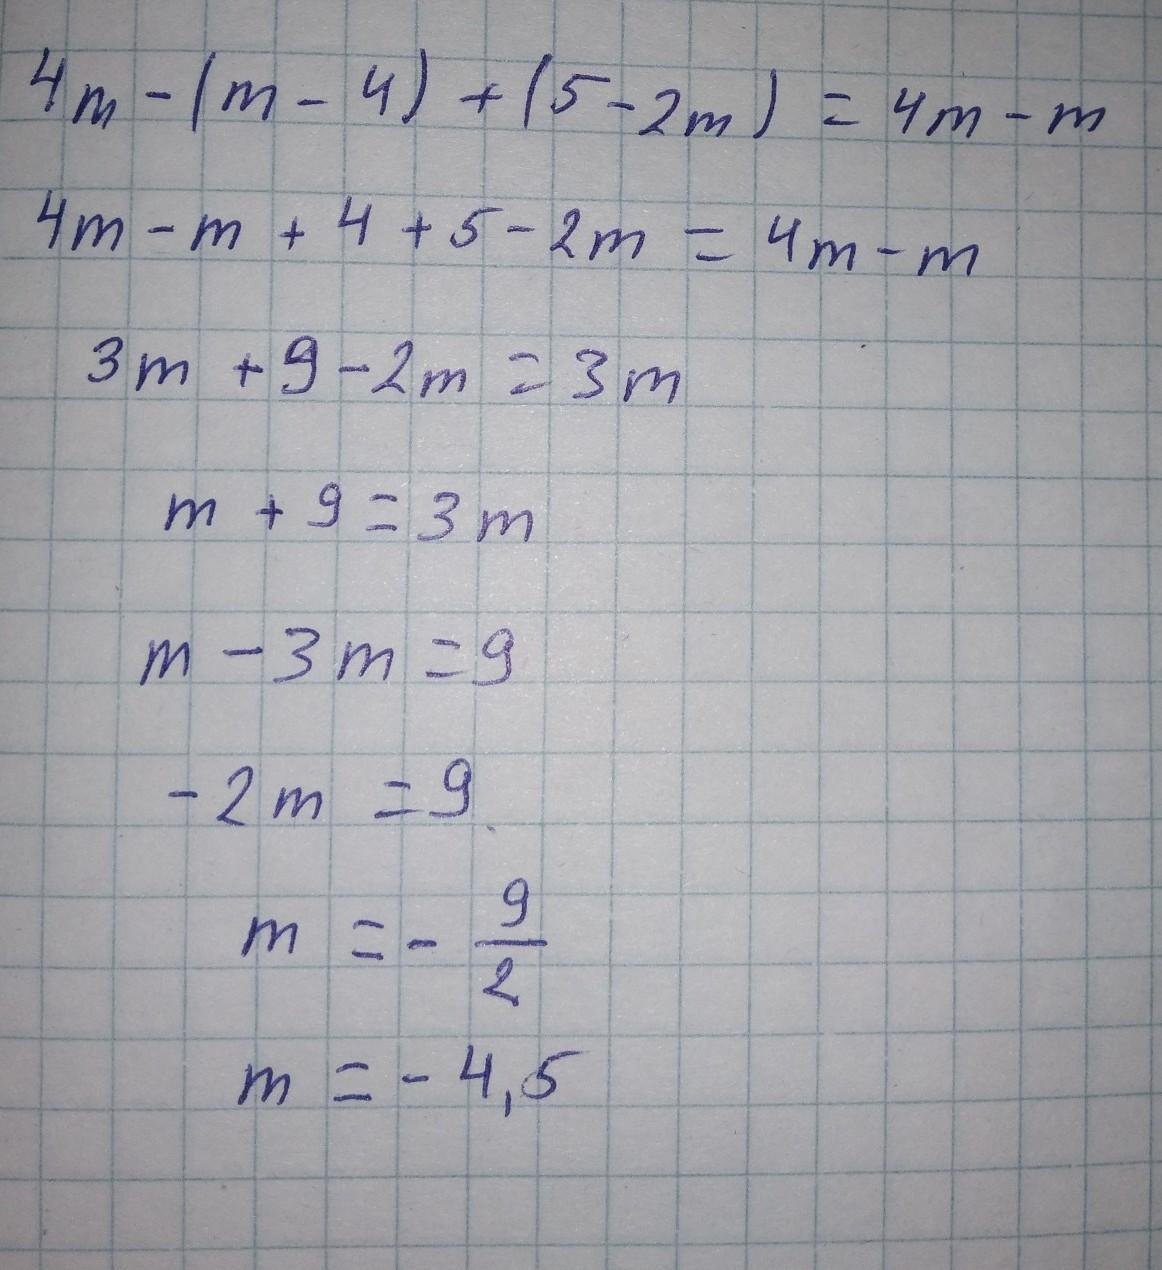 4m - (m - 4) + (5 - 2m) = 4m - m
4m - m + 4 + 5 - 2m = 4m - m
3m + 9 - 2m = 3m
m + 9 = 3m
m - 3m = 9
-2m = 9
m = - 9/2
m = - 4,5